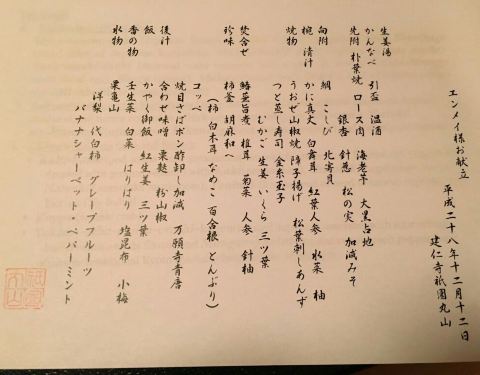 エンメイ様お献立
平成二十八年十二月十二日
建仁寺祇園丸山
生姜湯
かんなべ 引盃 温酒
先附 朴葉焼 ロース肉 海老芋 大黒占地
銀杏 針葱 松の実 加減みそ
向附 鯛 こしび 北寄貝
椀 清汁 かに真丈 白舞茸 紅葉人参 水菜 柚
焼物 うおぜ山椒焼 障子揚げ 松葉刺しあんず
つと蒸し寿司 金糸玉子
むかご 生姜 いくら 三ツ葉
焚合せ 椎茸 菊菜 人参 針柚
珍味 柿釜 胡麻和へ
(柿 白木耳 なめこ 百合根 とんぶり)
コッペ
焼目さばポン酢卸し加減 万願寺青唐
後汁 合わせ味噌 粟麩 粉山椒
飯 かやく御飯 紅生姜 三ツ葉
香の物 壬生菜 白菜 はりはり 塩昆布 小梅
水物 栗亀山
洋梨 代白柿 グレープフルーツ
バナナシャーベット・ペパーミント
祇園丸山